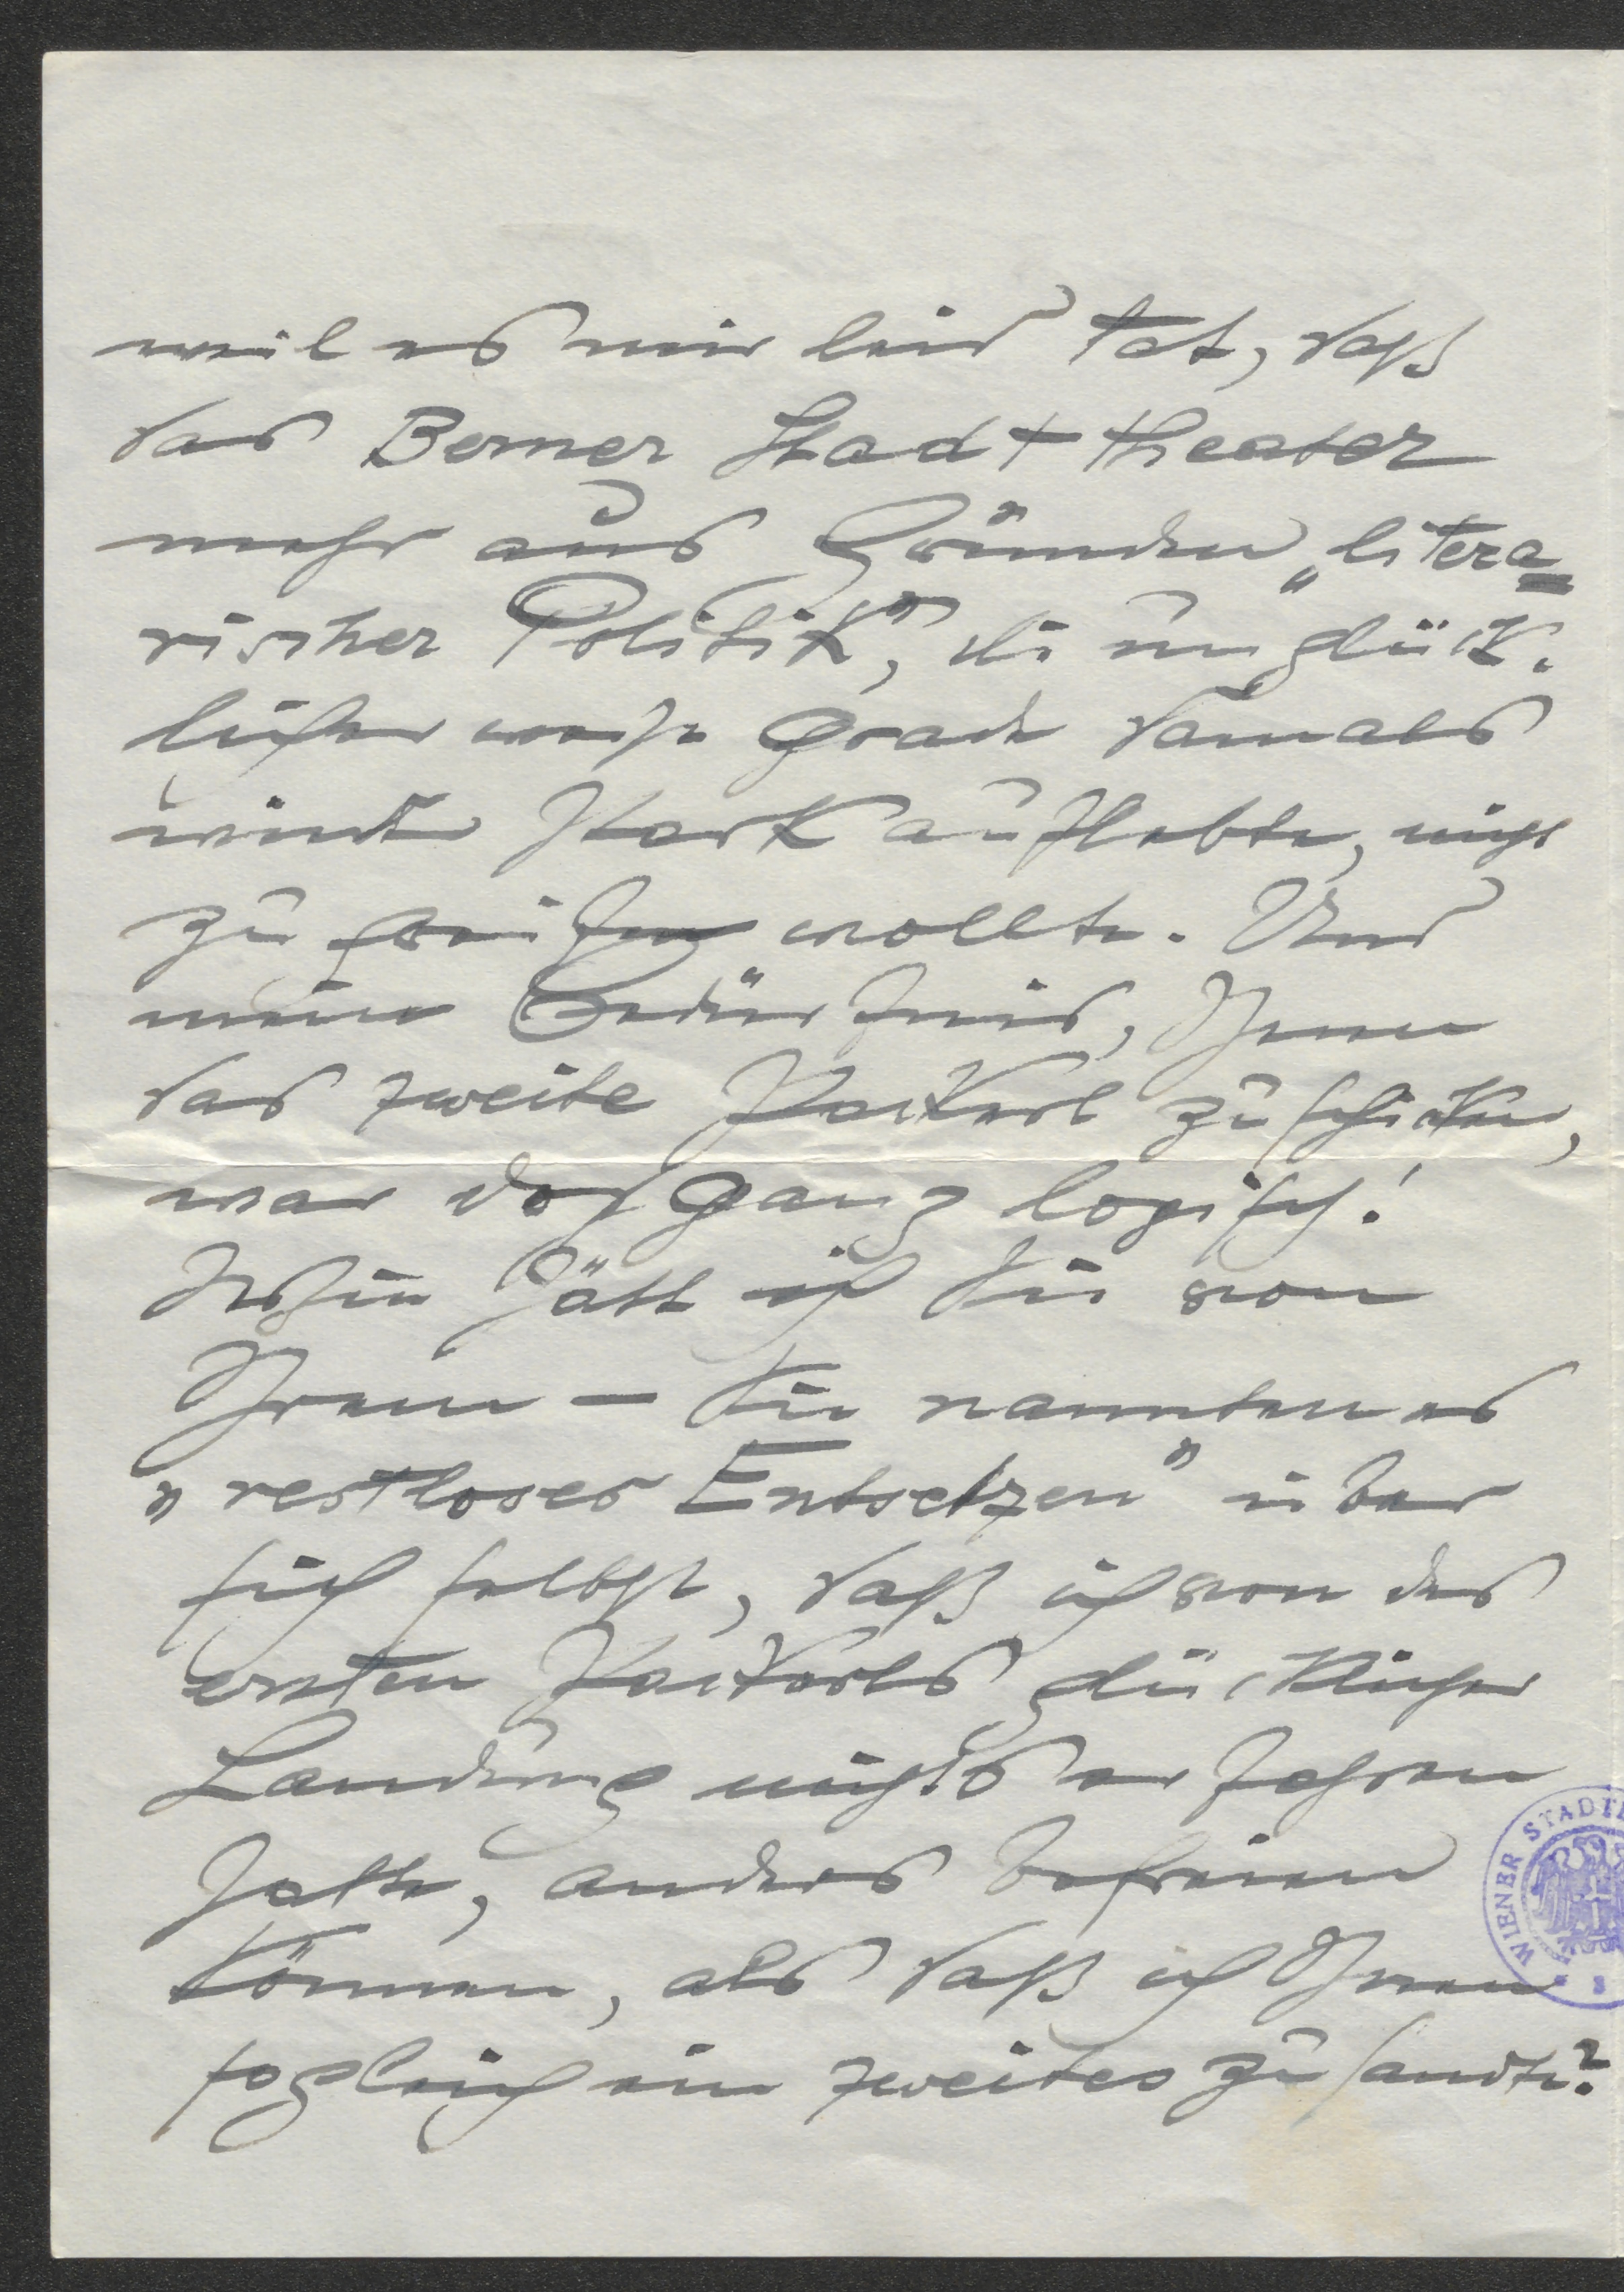 weil es mir leid tat, daß
das Berner Stadttheater
mehr aus Gründen „litera=
rischer Politik", die unglück-
licherweise grade damals
wieder stark auflebte, nicht
zu wollte. Und
mein Bedürfnis, Ihnen
das zweite Packerl zu schicken,
war doch ganz logisch!
hätt ich Sie von
Ihrem — Sie nannten es
„restloses Entsetzen" über
sich selbst, daß ich von des
ersten Packerls glücklicher
Landung nichts erfahren
hatte, anders befreien
können, als daß ich Ihnen
sogleich ein zweites zusandte?
WIENER STADT